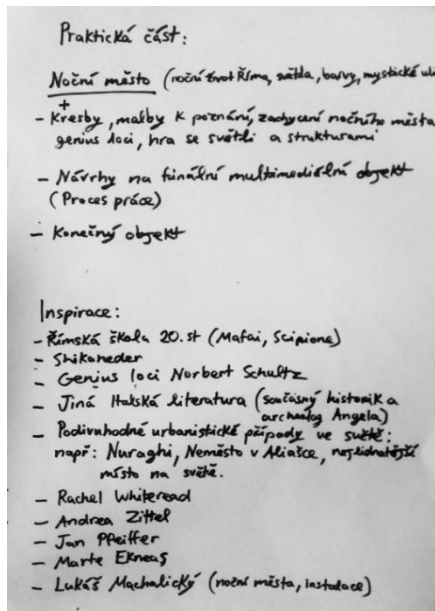 Praktická část:
Noční město (noční život Říma, světla, barvy, mystické uli
+
- Kresby, malby k poznání, zachycení nočního města
genius loci, hra se světli a strukturami
- Návrhy na finální multimediální objekt
(Proces práce)
- Konečný objekt
Inspirace:
- Římská škola 20.st (Mafai, Scipione)
- Shikaneder
- Genius loci Norbert Schultz
- Jiná Italská literatura (současný historik a
archeolog Angela)
- Podivuhodné urbanistické případy ve světě:
např: Nuraghi, Neměsto v Aljašce, nejlidnatější
místo na světě.
- Rachel Whiteread
- Andrea Zittel
- Jan Pfeiffer
- Marte
- Lukáš Machalický (noční města, instalace)